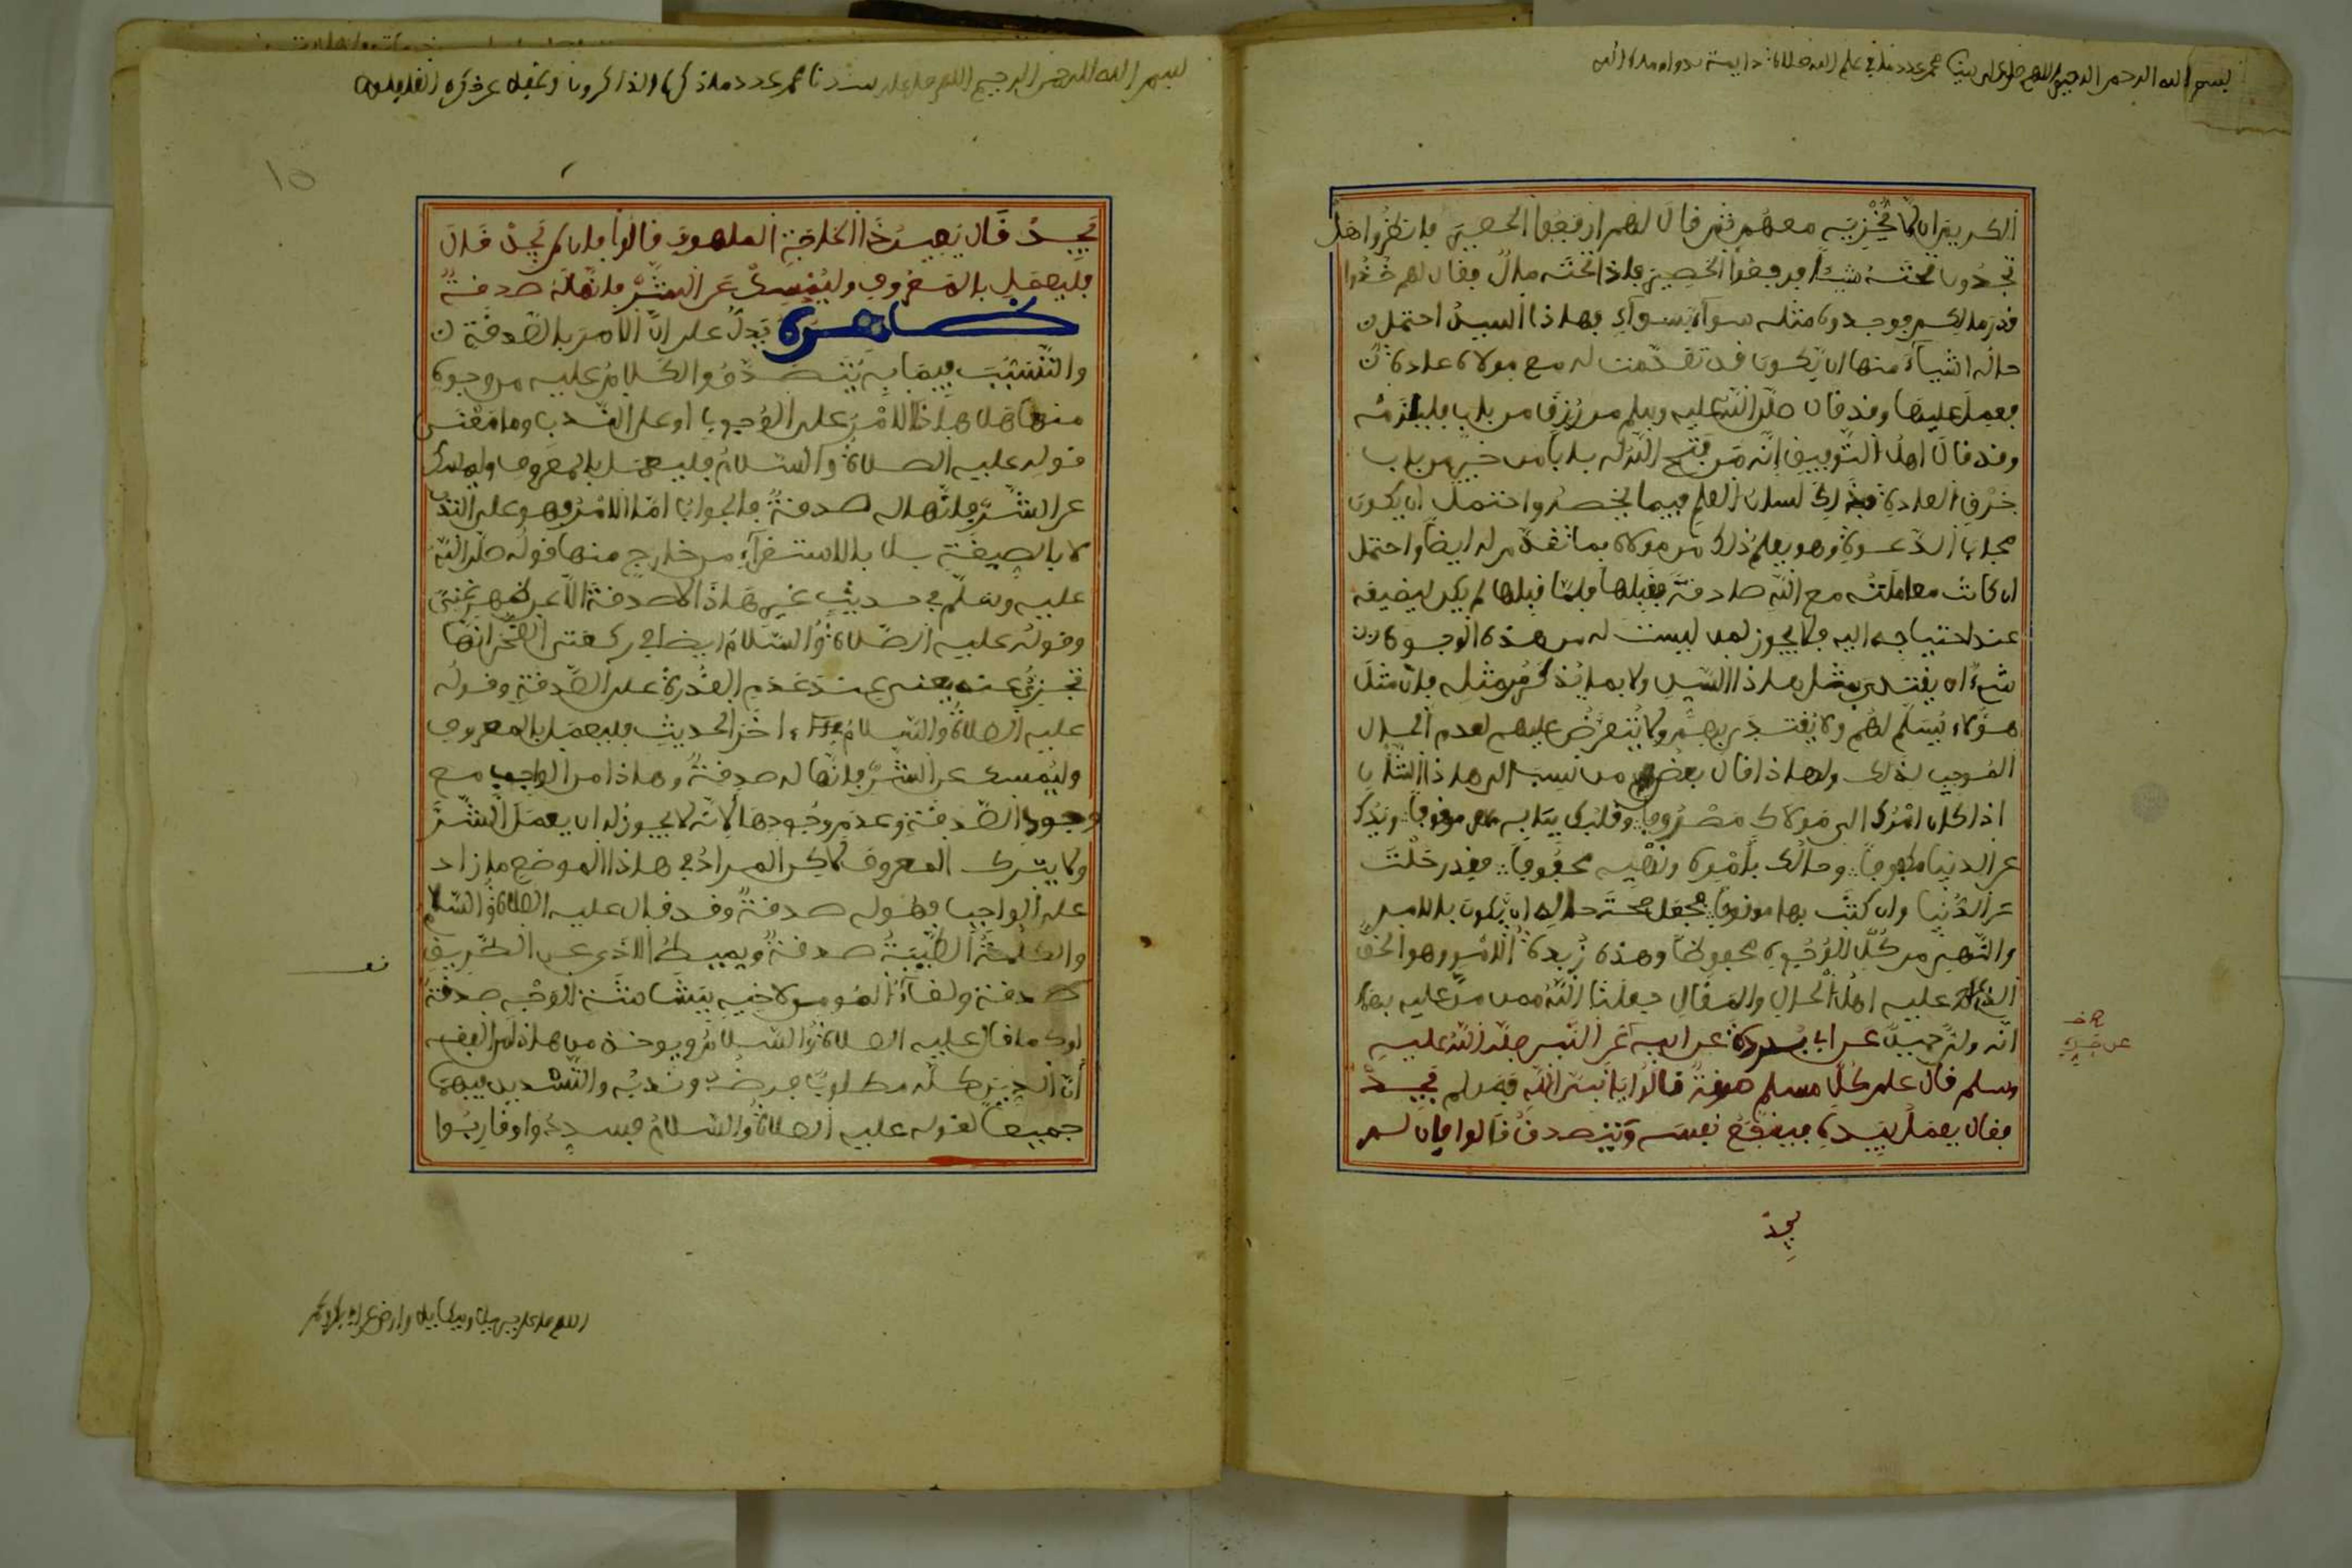 بسم الله الرحمن الرحيم اللهم صل على سيدنا محمد عدد ما في علم الله صلاة دائمة بدوام ملك الله
الكريم ان لا يخزيه معهم ثم قال لهم ارفعوا الحصير فانظروا هل
تجدون تحته شيئا فرفعوا الحصير فاذا تحته مال فقال لهم خذوا
قدر مالكم فوجدوه مثله سواء بسواء فهاذا السيد احتمل
حاله اشياء منها ان يكون قد تقدمت له مع مولاه عادة
فعمل عليها وقد قال صلى الله عليه وسلم من رزق من باب فليلزمه
وقد قال اهل التوفيق انه من فتح الله له بابا من خير من باب
خرق العادة فذلك لسان العلم فيما يخصه واحتمل ان يكون
مجاب الدعوة وهو يعلم ذلك من مولاه بما تقدم له ايضا واحتمل
ان كانت معاملته مع الله صادقة فقبلها فلما قبلها لم يكن ليضيعه
عند احتياجه اليه فلا يجوز لمن ليست له من هذه الوجوه
شيء ان يقتدي بمثل هاذا السيد ولا بما يذكر من مثله فان مثل
هؤلاء يسلم لهم ولا يقتدى بهم ولا يتعرض عليهم لعدم الحال
الموجب لذلك ولهاذا قال بعض من نسب الى هاذا الشأن
اذا كان امرك الى مولاك مصروفا وقلبك ببابه موقوفا ويدك
عن الدنيا مكفوفا وحالك بأمره ونهيه محفوفا فقد رحلت
عن الدنيا وان كنت بها موقوفا فجعل صحة حاله ان يكون بالامر
والنهي من كل الوجوه محفوفا وهذه زبدة الامر وهو الحق
الذي عليه اهل الحال والمقال جعلنا الله ممن من عليه بهما
انه ولي حميد عن ابي بردة عن ابيه عن النبي صلى الله عليه
وسلم قال على كل مسلم صدقة قالوا يا نبي الله فمن لم يجد
فقال يعمل بيده فينفع نفسه ويتصدق قالوا فان لم
يجد
عن جده
بسم الله الرحمن الرحيم اللهم صل على سيدنا محمد عدد ما ذكره الذاكرون وغفل عن ذكره الغافلون
يجد قال يعين ذا الحاجة الملهوف قالوا فان لم يجد قال
فليعمل بالمعروف وليمسك عن الشر فانها له صدقة
ظاهره يدل على ان الامر بالصدقة
والتسبب فيما به يتصدق والكلام عليه من وجوه
منها هل هاذا الامر على الوجوب او على الندب وما معنى
قوله عليه الصلاة والسلام فليعمل بالمعروف وليمسك
عن الشر فانها له صدقة فالجواب اما الامر فهو على الندب
لا بالصيغة بل بالاستقراء من خارج منها قوله صلى الله
عليه وسلم في حديث غير هاذا لا صدقة الا عن ظهر غنى
وقوله عليه الصلاة والسلام ايضا في ركعتي الضحى انها
تجزئ عنه يعني عند عدم القدرة على الصدقة وقوله
عليه الصلاة والسلام في اخر الحديث فليعمل بالمعروف
وليمسك عن الشر فانها له صدقة وهاذا من الواجب مع
وجود الصدقة وعدم وجودها لانه لا يجوز له ان يعمل الشر
ولا يترك المعروف لكن المراد في هاذا الموضع ما زاد
على الواجب فهو له صدقة وقد قال عليه الصلاة والسلام
والكلمة الطيبة صدقة ويميط الاذى عن الطريق
صدقة ولقاء المومن لاخيه ببشاشة الوجه صدقة
او كما قال عليه الصلاة والسلام ويوخذ من هاذا من الفقه
أن الدين كله مطلوب فرضه وندبه والتسديد فيهما
جميعا لقوله عليه الصلاة والسلام فسددوا وقاربوا
اللهم صل على جبريل وميكائيل وارض عن ابي بكر وعمر
10